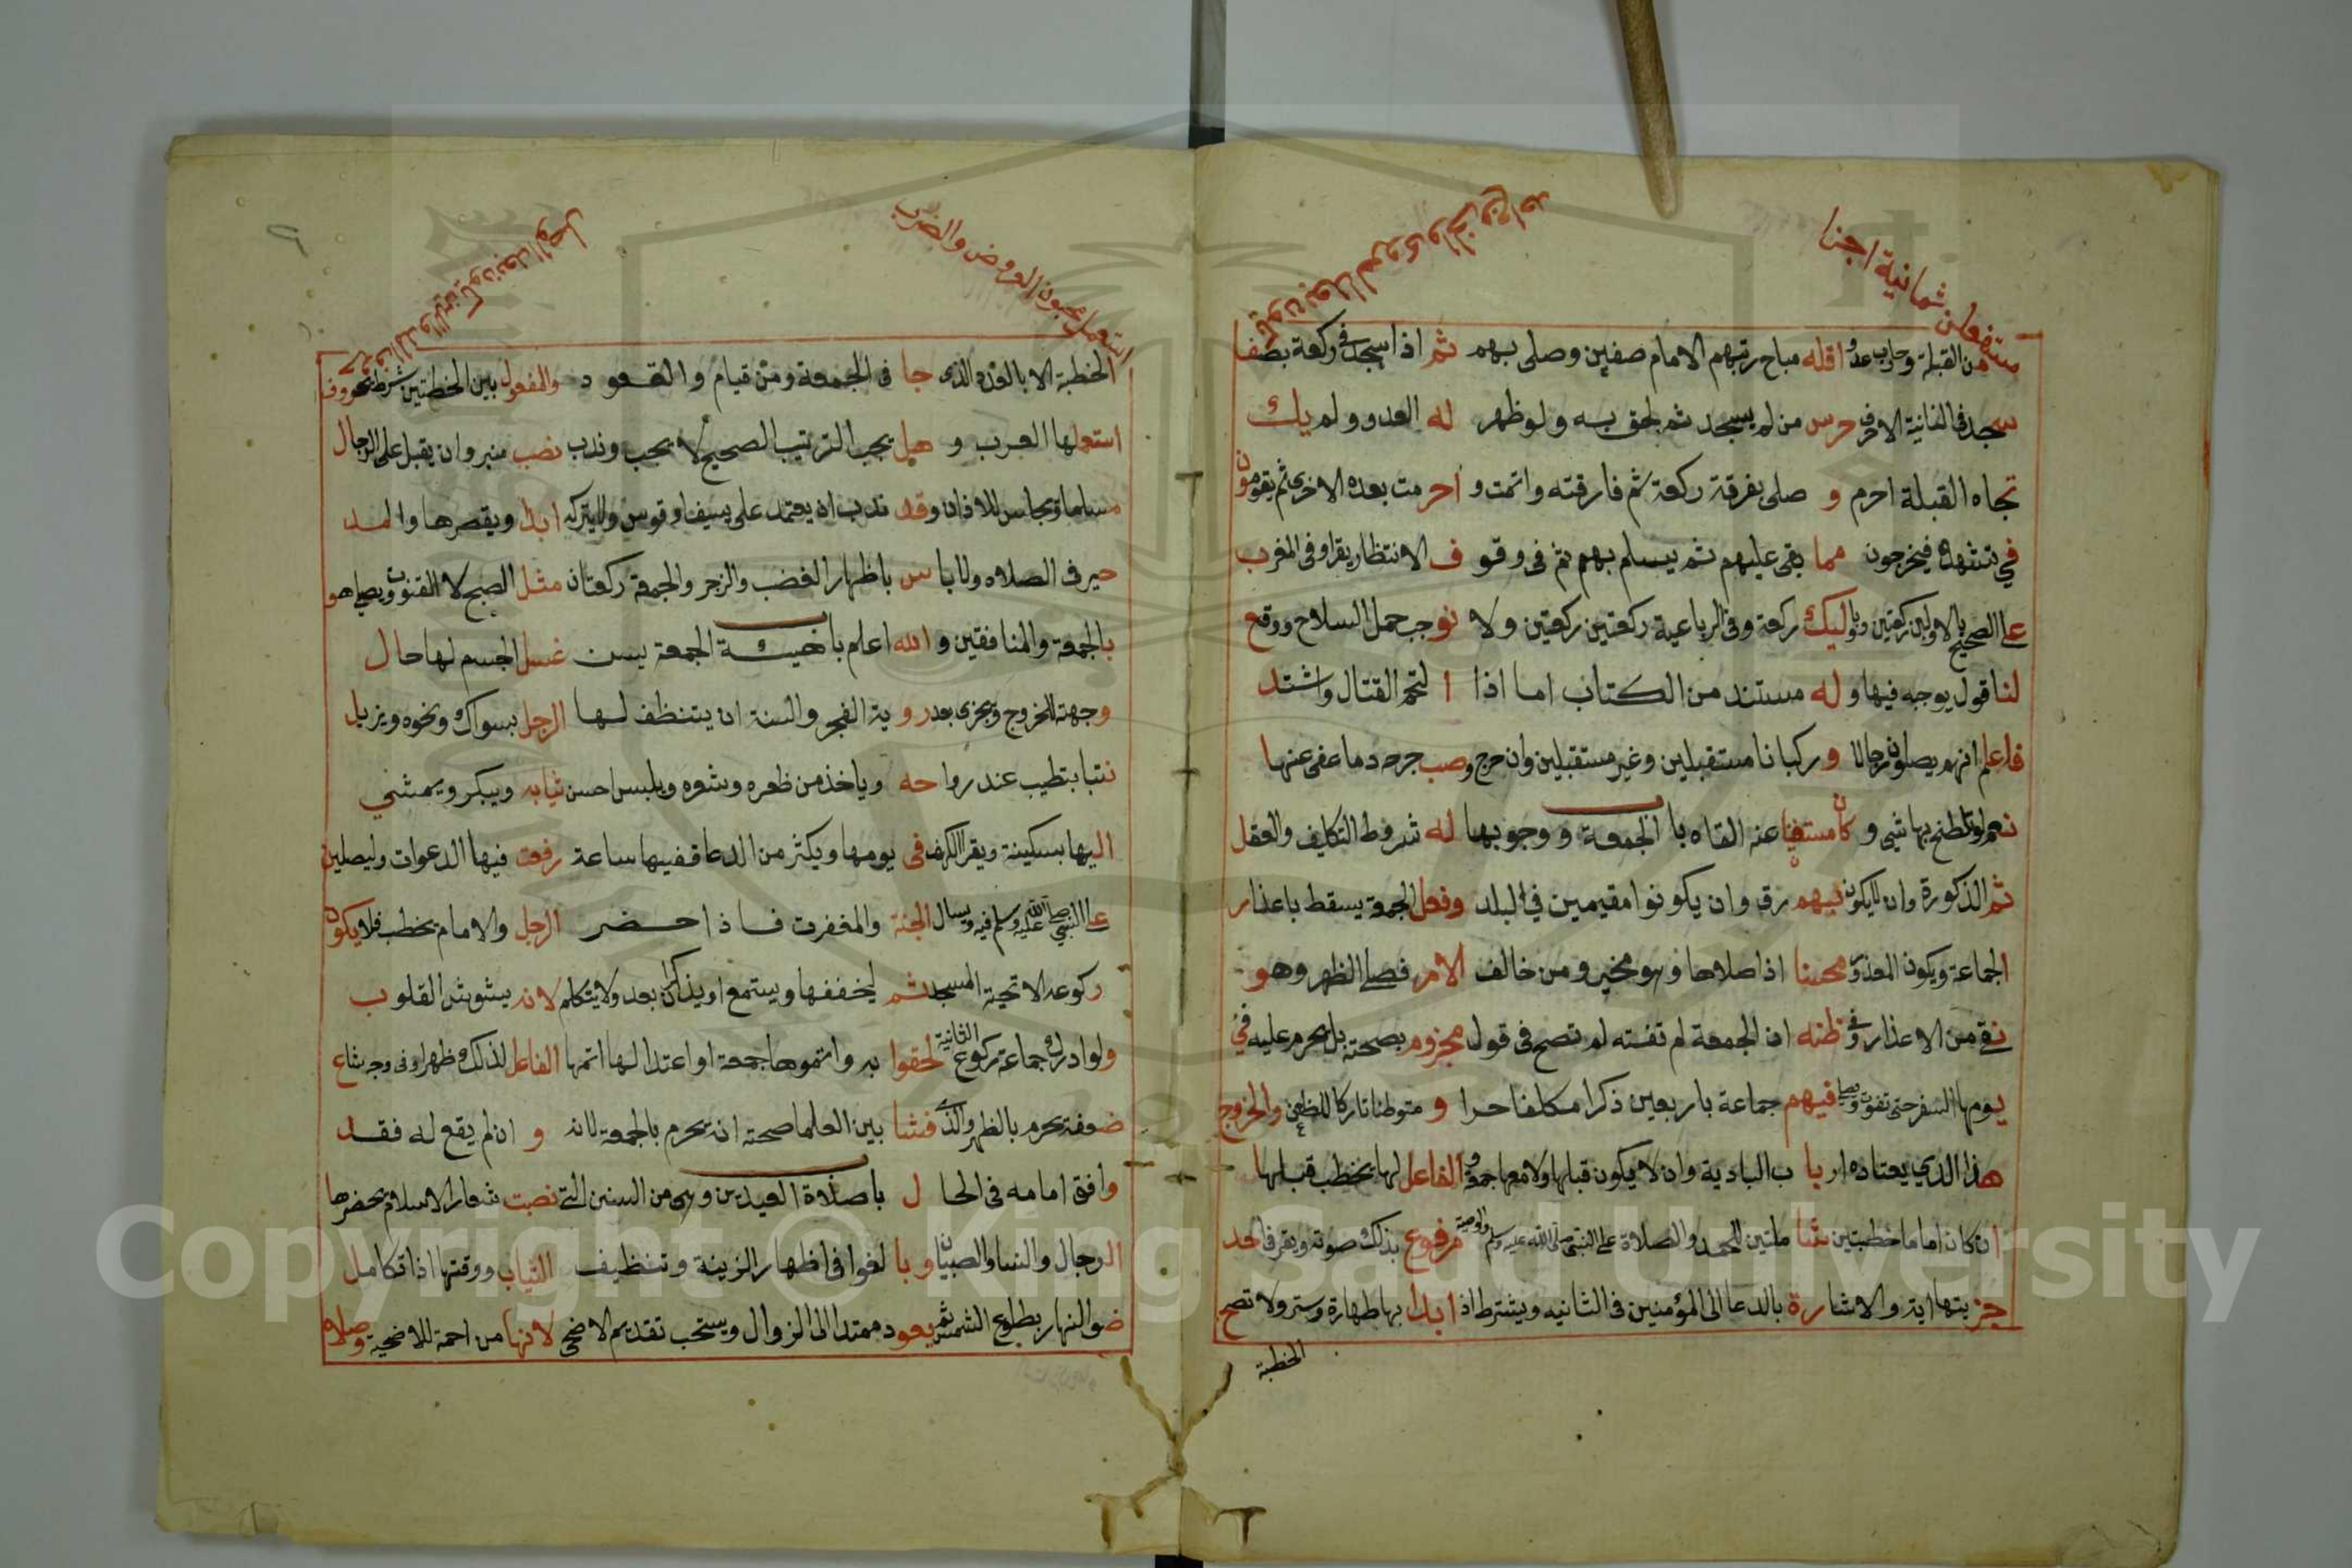 مستفعلن ثمانية اجزا
من القبلة وحارب عدو اقله مباح رتبهم الامام صفين وصلى بهم ثم اذا سجد في ركعة بصفا
سجد في الثانية الاخر حرس من لم يسجد ثم يلحق به ولو ظهر له العدو ولم يك
تجاه القبلة احرم و صلى بفرقة ركعة ثم فارقته واتمت و احرمت بعده الاخرى ثم يقومون
في تشهده فيخرجون مما بقى عليهم ثم يسلم بهم ثم في وقو ف الانتظار يقرا وفي المغرب
على الصحيح بالاولين ركعتين وبا وليك ركعة وفي الرباعية ركعتين ركعتين ولا نوجب حمل السلاح ووقع
لنا قول يوجبه فيها و له مستند من الكتاب اما اذا ا لتحم القتال واشتد
فاعلم انهم يصلون رجالا و ركبانا مستقبلين وغير مستقبلين وان حرج وصب جرحه دما عفى عنها
نعم لو تلطخ بها شي و كان مستغنيا عنه القاه با الجمعة و وجوبها له شروط التكليف والعقل
ثم الذكورة وان لا يكون فيهم رق وان يكونوا مقيمين في البلد وفعل الجمعة يسقط باعذار
الجماعة ويكون المعذور محسنا اذا صلاها وهو مخير ومن خالف الامر فصلى الظهر وهو
نقي من الاعذار وفي ظنه ان الجمعة لم تفته لم تصح في قول مجزوم بصحته بل يحرم عليه في
يومها السفر حتى تفوت فيهم جماعة باربعين ذكرا مكلفا حرا و متوطنا تاركا للظعن والخروج
هذا الذي يعتاده اربا ب البادية وان لا يكون قبلها ولا معها جمعة و الفاعل لها يخطب قبلها
ان كان اماما خطبتين شا ملتين للحمد والصلاة على النبي صلى الله عليه وسلم والوصية مرفوع بذلك صوته ويقرا في احد
جزيتها اية والاشا رة بالدعا الى المؤمنين في الثانيه ويشترط اذ ابدا بها طهارة وستر ولا تصح
الخطبة
استعمل مخبون العروض والضرب
الخطبة الا بالعدد الذي جا في الجمعة ومن قيام و القعود والمفعول بين الخطبتين شرط بحروف
استعملها العرب و هل يجب الترتيب الصحيح لا يجب وندب نصب منبر وان يقبل على الرجال
مسلما ويجلس للاذان و قد ندب ان يعتمد على سيف او قوس ولا يتركه ابدا ويقصرها والمد
حير في الصلاه ولا با س باظهار الغضب والزجر والجمعة ركعتان مثل الصبح لا القنوت ويصلى هو
بالجمعة والمنافقين و الله اعلم با هيئة الجمعة يسن غسل الجسم لها حال
وجهته للخروج ويجزى بعد رو ية الفجر والسنة ان يتنظف لها الرجل بسواك ونحوه ويزيل
نتنا بتطيب عند روا حه وياخذ من ظفره وشعره ويلبس احسن ثيابه ويبكر ويمشي
اليها بسكينة ويقرا الكهف في يومها ويكثر من الدعا ففيها ساعة رفعت فيها الدعوات وليصلين
على النبي صلى الله عليه وسلم فيه ويسال الجنة والمغفرت فاذا حضر الرجل والامام يخطب فلا يكون
ركوعه الا تحية المسجد ثم يخففها ويستمع او يذاكر ان بعد ولا يتكلم لانه يشوش القلوب
ولو ادرك جماعة ركوع الثانية لحقوا به واتموها جمعة او اعتدالها اتمها الفاعل لذلك ظهرا وفي وجه شاع
ضعفه يحرم بالظهر والذي فشا بين العلما صحته انه يحرم بالجمعة لانه و ان لم يقع له فقد
وافق امامه في الحا ل با صلاة العيدين وهى من السنين التى نصبت شعار الاسلام يحضرها
الرجال والنسا والصبيان و با لغوا في اظهار الزينة وتنظيف الثياب ووقتها اذا تكامل
ضو النهار بطلوع الشمس ثم يعود ممتدا الى الزوال ويستحب تقديم الاضحى لانها من احمة للاضحية وصلاه